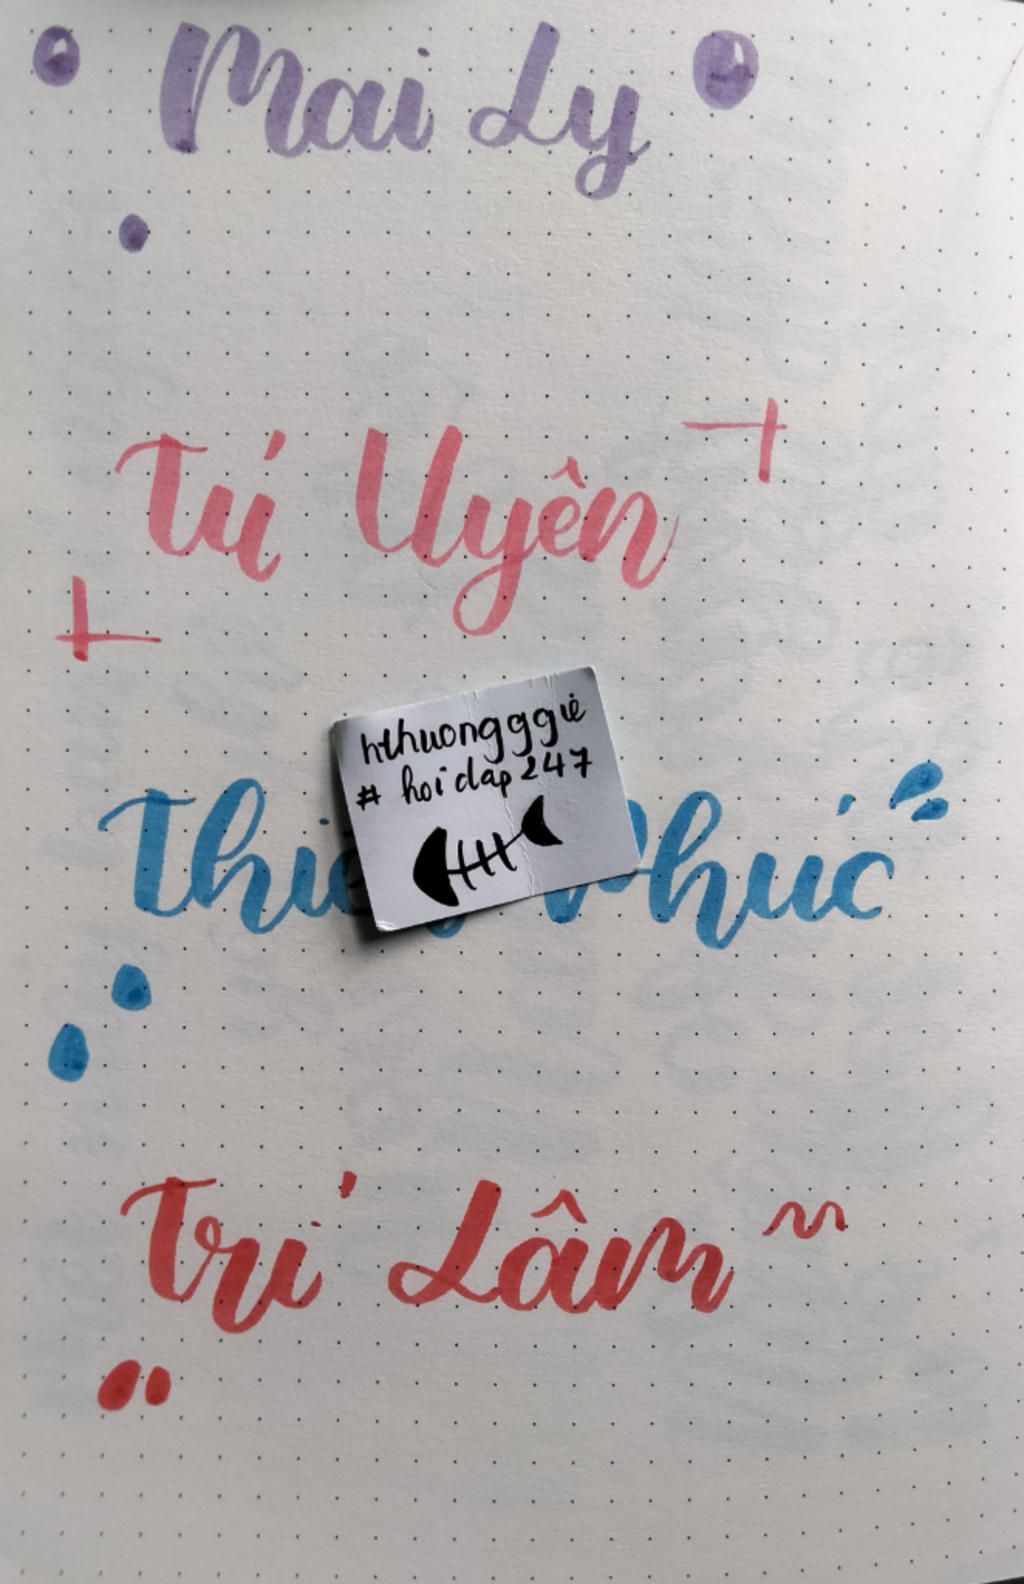 Mai Ly
Tú Uyên
hthuongggiè
# hoidap247
Phúc
Trí Lâm